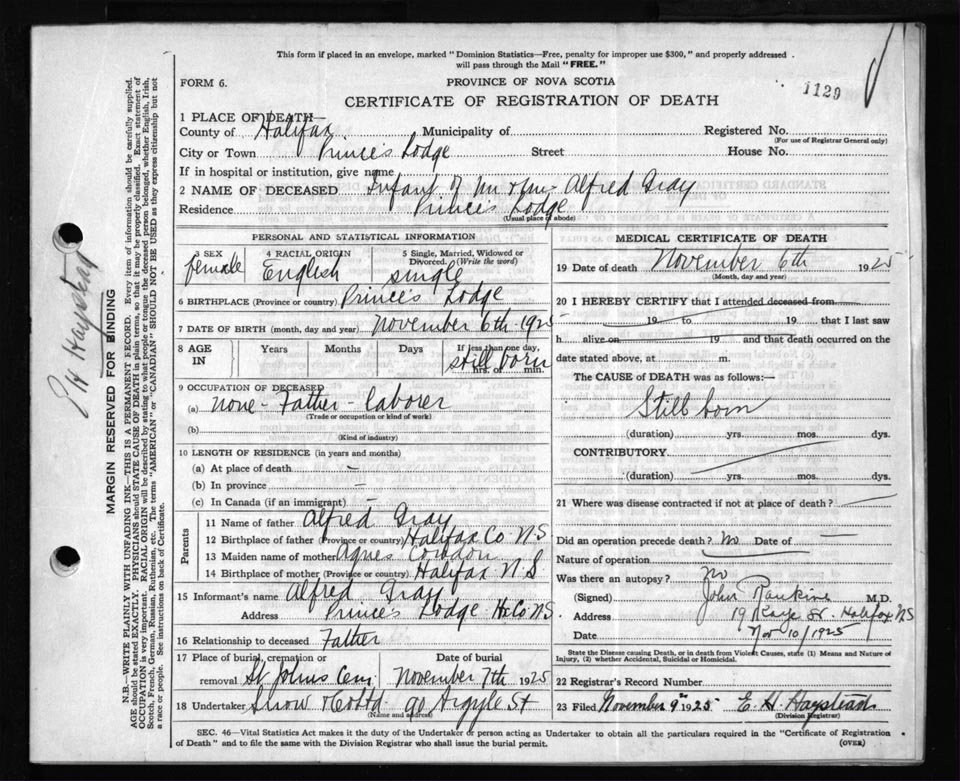 This form if placed in an envelope, marked "Dominion Statistics—Free, penalty for improper use $300," and properly addressed
will pass through the Mail "FREE."
FORM 6. PROVINCE OF NOVA SCOTIA
1129
CERTIFICATE OF REGISTRATION OF DEATH
1 PLACE OF DEATH—
County of Halifax Municipality of Registered No.
(For use of Registrar General only)
City or Town Princes Lodge Street House No.
If in hospital or institution, give name
2 NAME OF DECEASED Infant of Mr & Mrs Alfred Gray
Residence Princes Lodge
(Usual place of abode)
PERSONAL AND STATISTICAL INFORMATION
3 SEX 4 RACIAL ORIGIN 5 Single, Married, Widowed or Divorced. (Write the word)
female English single
6 BIRTHPLACE (Province or country) Princes Lodge
7 DATE OF BIRTH (month, day and year) November 6th 1925
8 AGE IN Years Months Days If less than one day, hrs. or min.
still born
9 OCCUPATION OF DECEASED
(a) none - Father - laborer
(Trade or occupation or kind of work)
(b)
(Kind of industry)
10 LENGTH OF RESIDENCE (in years and months)
(a) At place of death —
(b) In province —
(c) In Canada (if an immigrant) —
Parents
11 Name of father Alfred Gray
12 Birthplace of father (Province or country) Halifax Co N S
13 Maiden name of mother Agnes
14 Birthplace of mother (Province or country) Halifax N S
15 Informant's name Alfred Gray
Address Princes Lodge Hx Co N S
16 Relationship to deceased Father
17 Place of burial, cremation or removal St Johns Cem Date of burial November 7th 1925
18 Undertaker Snow & Co Ltd 90 Argyle St
(Name and address)
MEDICAL CERTIFICATE OF DEATH
19 Date of death November 6th 1925
(Month, day and year)
20 I HEREBY CERTIFY that I attended deceased from
19 to 19 that I last saw
h alive on 19 and that death occurred on the
date stated above, at m.
The CAUSE OF DEATH was as follows:—
Still born
(duration) yrs. mos. dys.
CONTRIBUTORY
(duration) yrs. mos. dys.
21 Where was disease contracted if not at place of death?
Did an operation precede death? No Date of —
Nature of operation
Was there an autopsy? no
(Signed) John Rankine M.D.
Address 19 Kaye St. Halifax N S
Date Nov 10/1925
State the Disease causing Death, or in death from Violent Causes, state (1) Means and Nature of
Injury, (2) whether Accidental, Suicidal or Homicidal.
22 Registrar's Record Number
23 Filed November 9th 1925 E. H. Haystead
(Division Registrar)
SEC. 46—Vital Statistics Act makes it the duty of the Undertaker or person acting as Undertaker to obtain all the particulars required in the "Certificate of Registration
of Death" and to file the same with the Division Registrar who shall issue the burial permit. (OVER)
E H Haystead
MARGIN RESERVED FOR BINDING
N.B.—WRITE PLAINLY WITH UNFADING INK—THIS IS A PERMANENT RECORD. Every item of information should be carefully supplied.
AGE should be stated EXACTLY. PHYSICIANS should STATE CAUSE OF DEATH in plain terms, so that it may be properly classified. Exact statement of
OCCUPATION is very important. RACIAL ORIGIN will be described by stating to what people or tongue the deceased person belonged, whether English, Irish,
Scotch, French, German, Russian, Ruthenian, etc. The terms "AMERICAN" or "CANADIAN" SHOULD NOT BE USED as they express citizenship but not
a race or people. See instructions on back of Certificate.